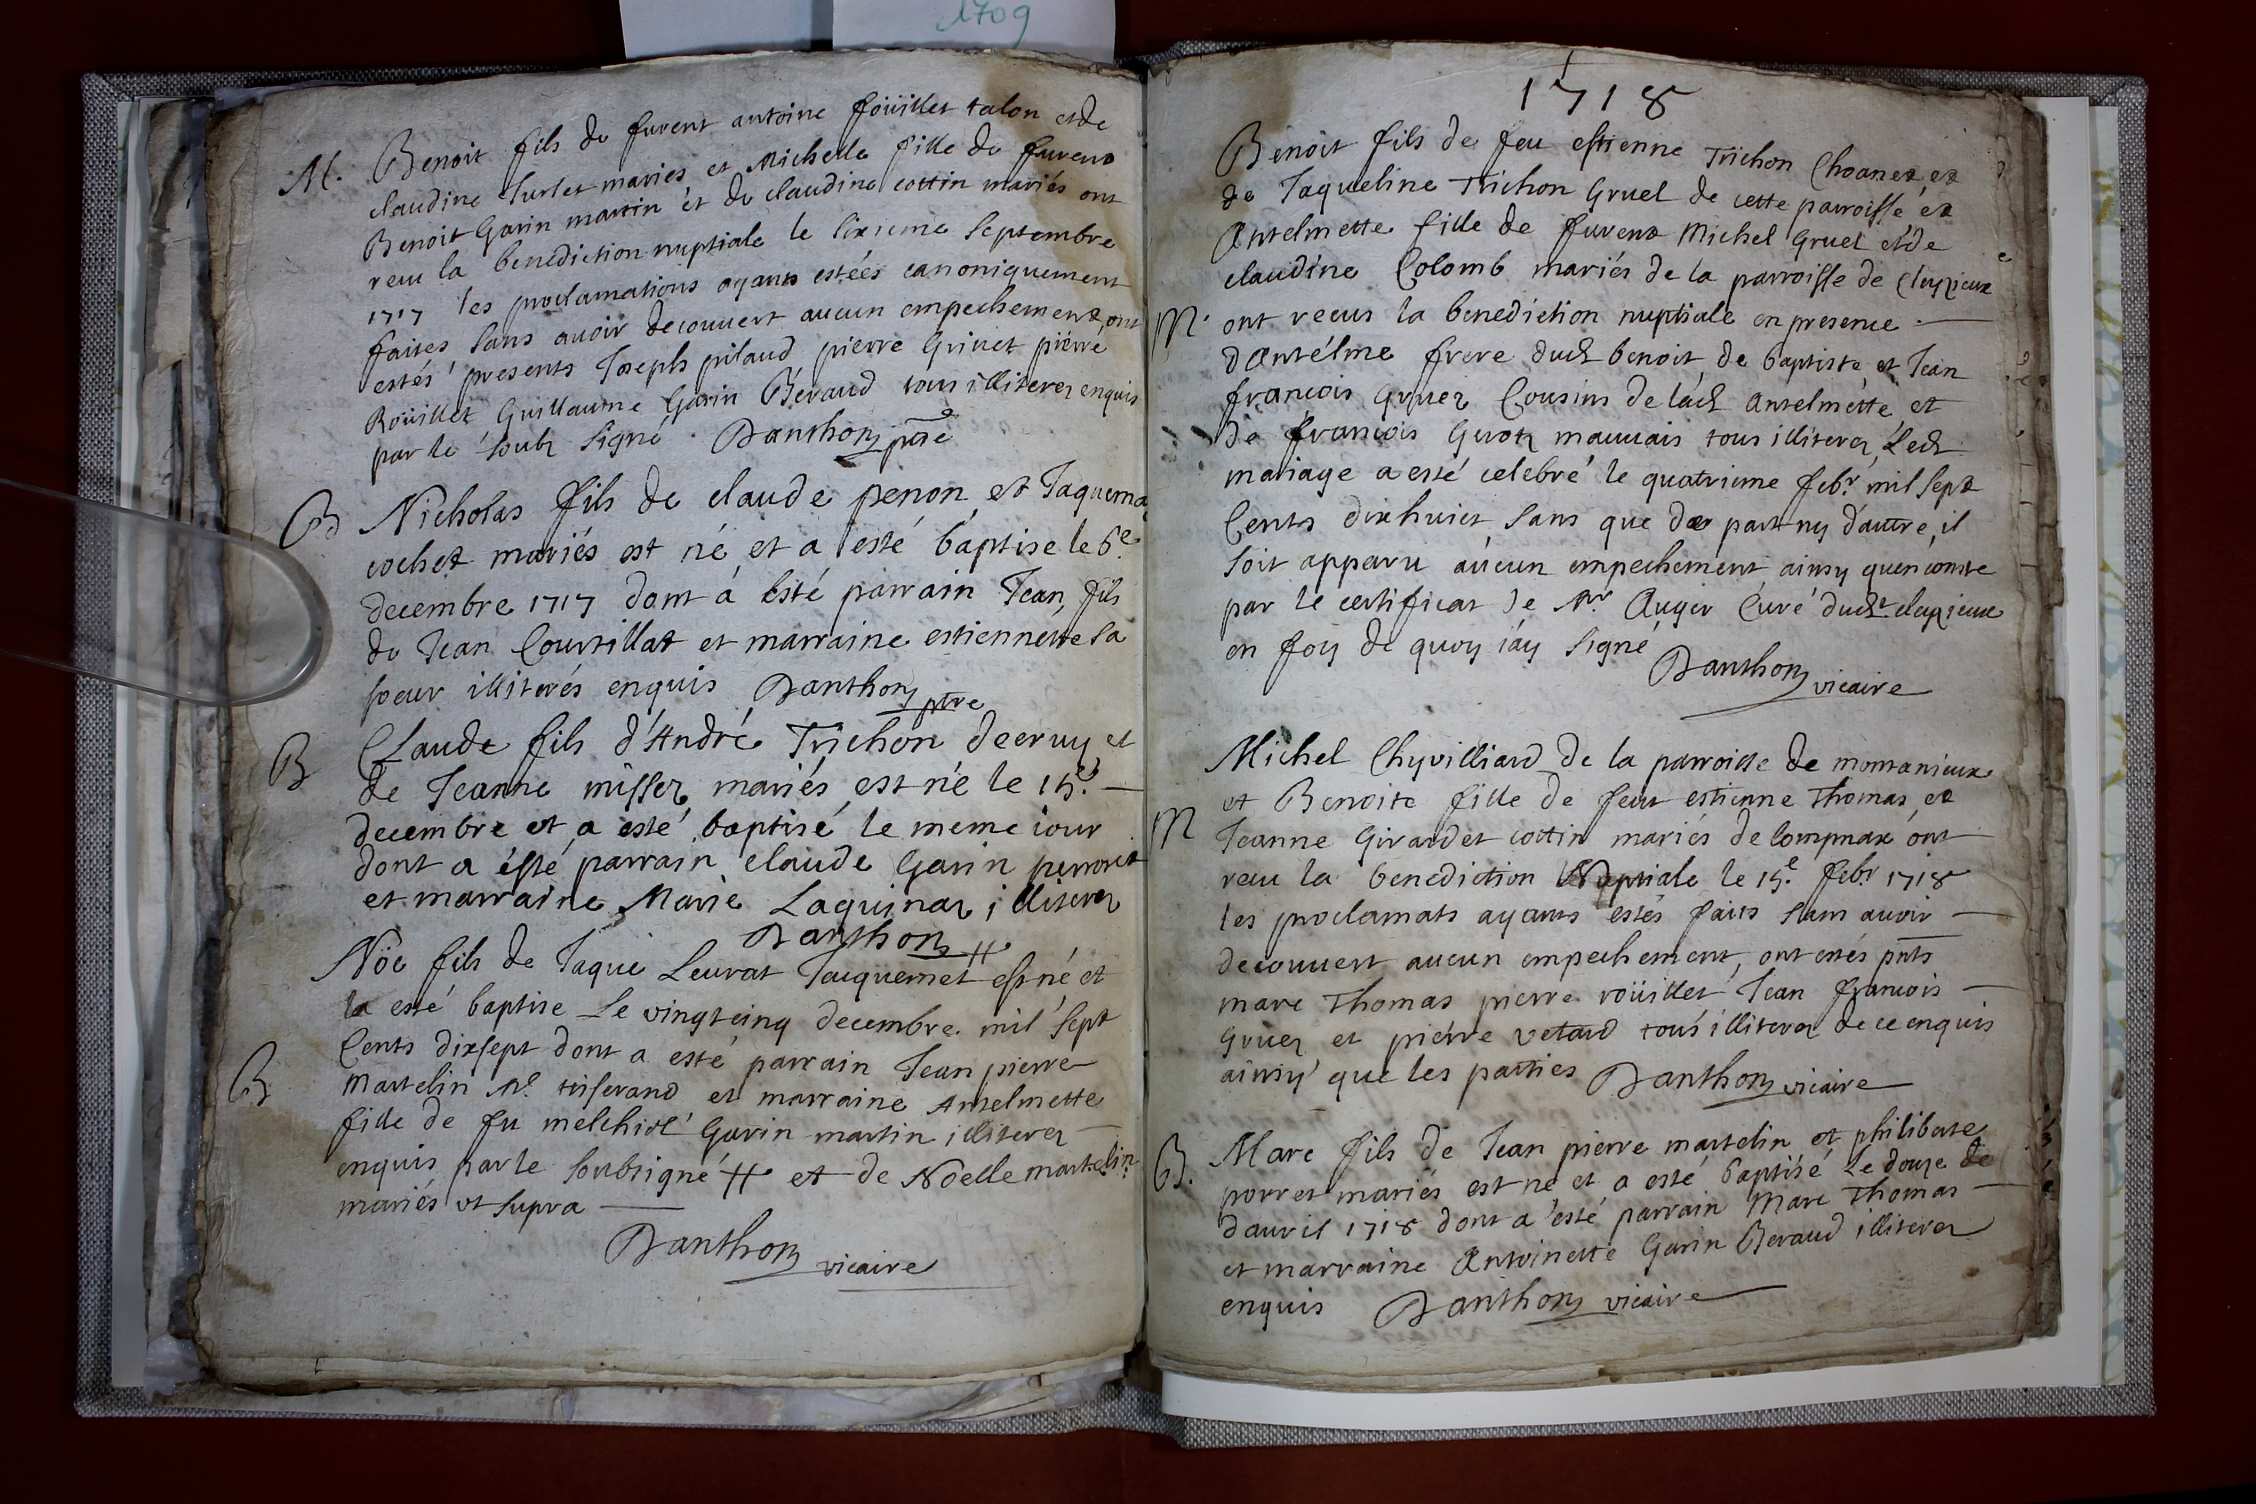 1709
M. Benoit fils de furent antoine foüillet talon et de
claudine Surlet mariés et Michelle fille de furent
Benoit Garin martin et de claudine cottin mariés ont
receu la benediction nuptiale le sixieme Septembre
1717 les proclamations ayants estées canoniquement
faites sans avoir decouvert aucun empechement, ont
estés presents Joseph pilaud pierre Grivet pierre
Roüillet Guillaume Garin Beraud tous illiterez enquis
par le soubz signé. Danthon ptre
B Nicholas fils de claude penon et Jaquema
cochet mariés est né et a esté baptise le 6e
decembre 1717 dont a esté parrain Jean fils
de Jean Courtillat et marraine estiennette sa
soeur illiterés enquis Danthon ptre
B Claude fils d'André Trichon decruy et
de Jeanne misser mariés est né le 15e
decembre et a esté baptisé le meme iour
dont a esté parrain claude Garin perronet
et marraine Marie Laquinaz illiterez
Danthon
Nöe fils de Jaque Leurat Jacquemet # est né et
la esté baptise Le vingtcinq decembre mil Sept
Cents dixsept dont a esté parrain Jean pierre
B Martelin Me. tisserand et marraine Antelmette
fille de fu melchiol Garin martin illiterez
enquis par le soubsigné # et de Noelle martelin
mariés ut supra
Danthon vicaire
1718
Benoit fils de feu estienne Trichon Choanet et
de Jaqueline Trichon Gruel de cette parroisse et
Antelmette fille de furent Michel Gruel et de
claudine Colomb mariés de la parroisse de Cleyzieux
M. ont receus la benediction nuptiale en presence
d'Antélme frere dudt benoit, de baptiste et Jean
francois Gruez Cousins de ladt antelmette et
de francois Guotz mauvais tous illiterez, Ledt
mariage a esté celebré le quatrieme febr. mil sept
Cents dixhuict sans que de part ny d'autre, il
soit apparu aucun empechement ainsy quen conste
par le certificat de Mr Auger Curé dudt cleyzieux
en foy de quoy iáy signé
Danthon vicaire
Michel Chyvilliard de la parroisse de montanieux
et Benoite fille de feut estienne Thomas et
M Jeanne Girardet cottin mariés de lompnax ont
receu la benediction Nuptiale le 15e. febr 1718
les proclamats ayants estés faits sans avoir
decouvert aucun empechement, ont estés pnts
marc Thomas pierre roüillet Jean francois
Gruez et pierre vetard tous illiterez de ce enquis
ainsy que les parties Danthon vicaire
B. Marc fils de Jean pierre martelin et philiberte
porret mariés est né et a esté baptisé Le douze de
davril 1718 dont a esté parrain Marc Thomas
et marraine Antoinette Garin Beraud illiterez
enquis Danthon vicaire